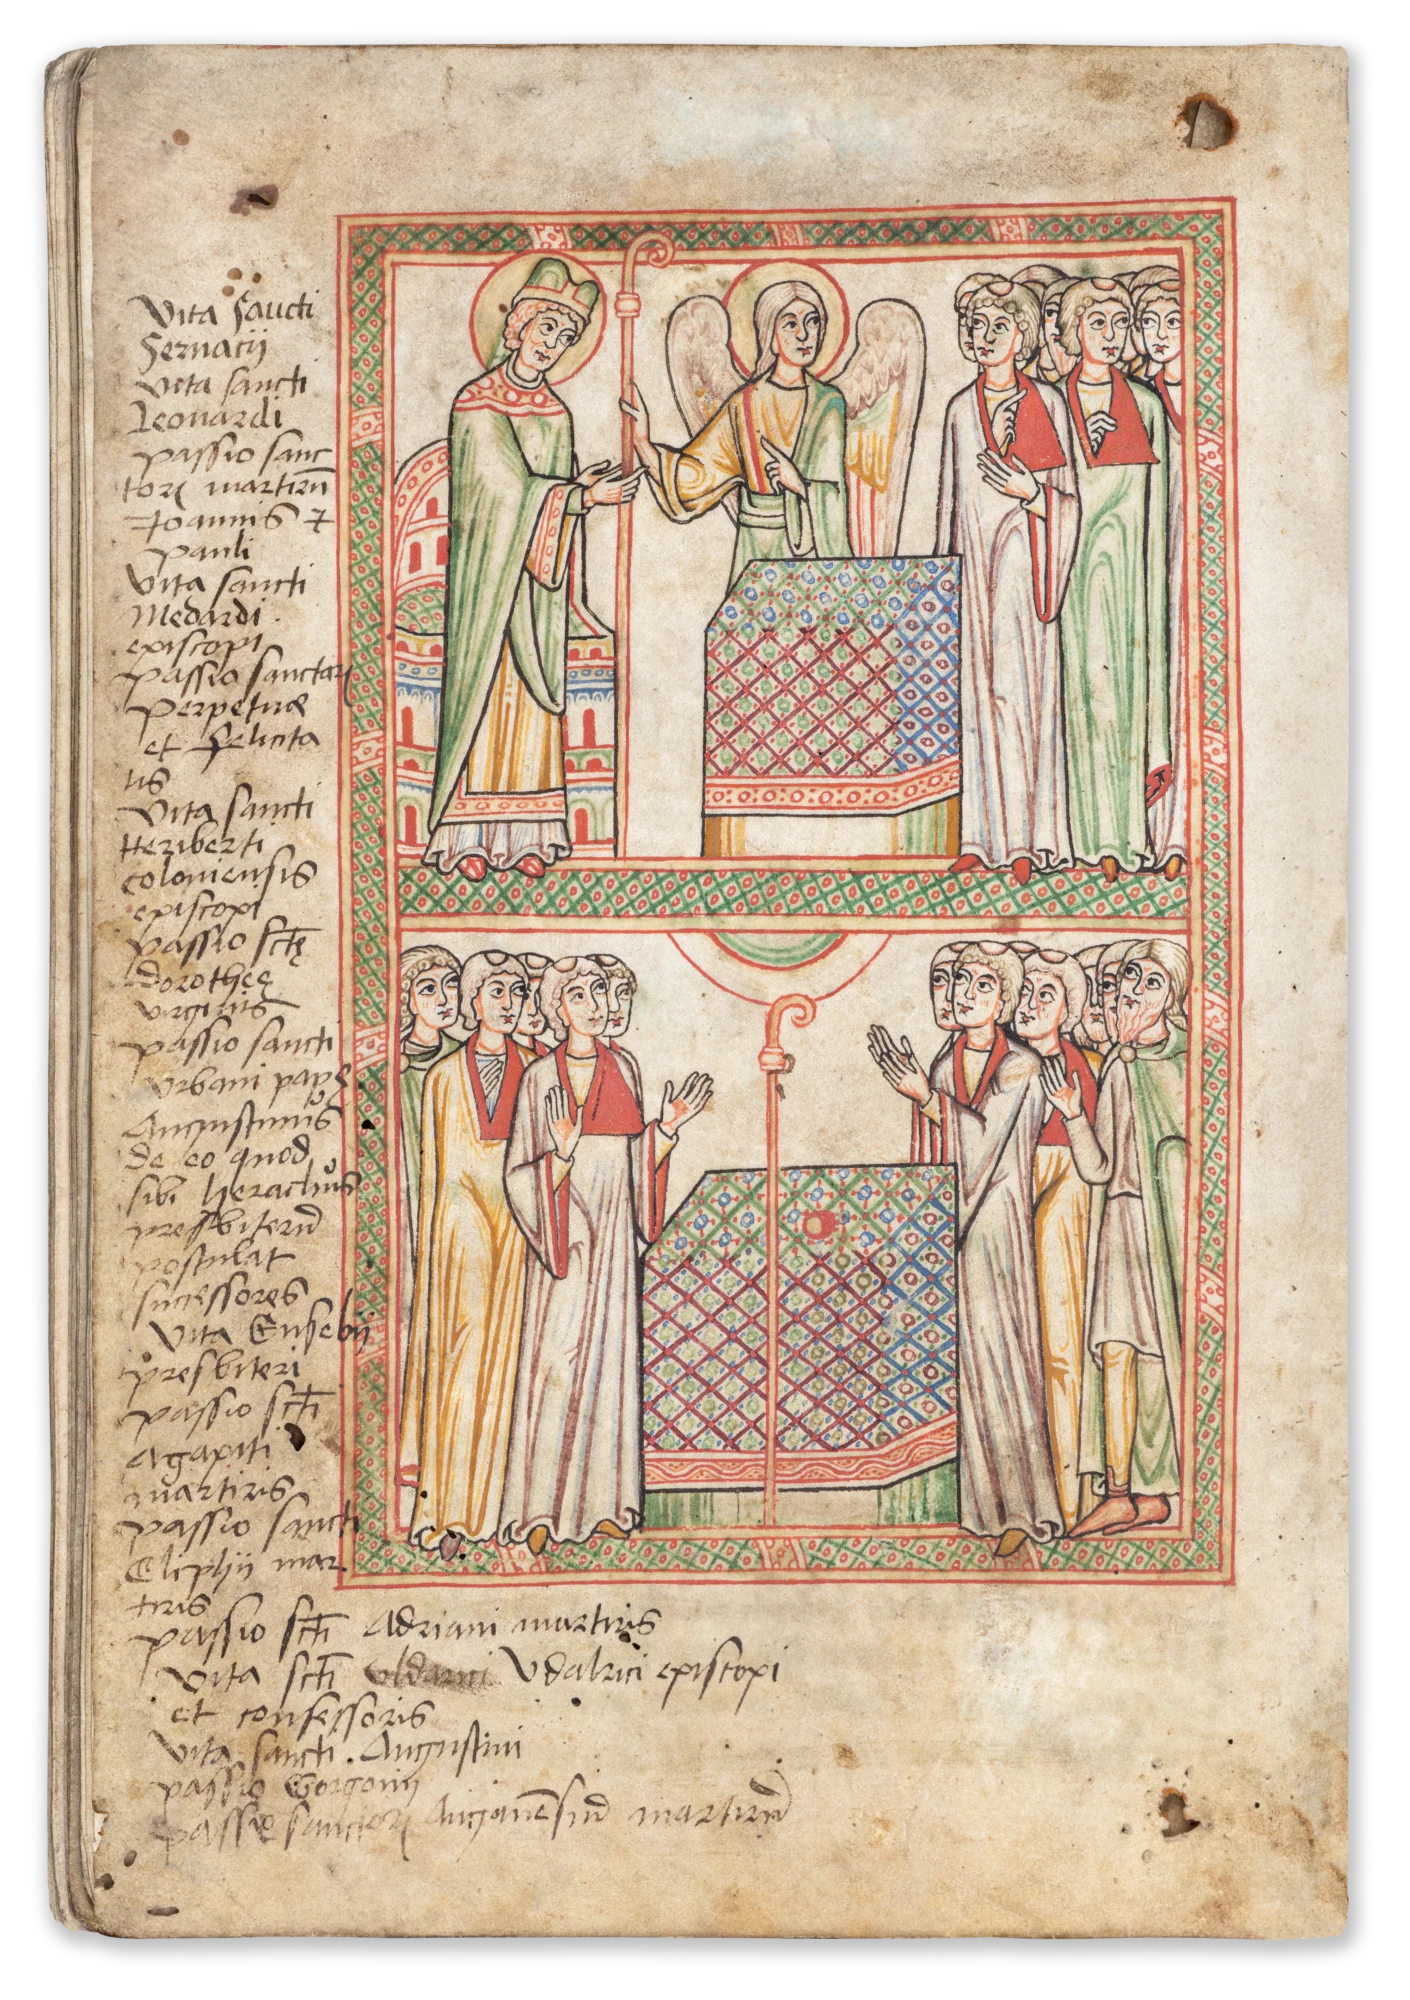 Vita sancti
Servacij
Vita sancti
Leonardi
passio sanc
torꝝ martirū
Joannis ⁊
pauli
Vita sancti
Medardi
episcopi
passio sanctarꝝ
perpetuæ
et Felicita
tis
Vita sancti
Heriberti
coloniensis
episcopi
passio sctę
dorotheę
virginis
passio sancti
Urbani papę
Augustinus
de eo quod
sibi heraclius
presbiterū
postulat
successores
Vita Eusebij
presbiteri
passio scti
Agapiti
martiris
passio sancti
Eliphij mar
tiris
passio scti Adriani martiris
Vita scti Vdalrici episcopi
et confessoris
Vita sancti Augustini
passio Gorgonij
passio sanctorꝝ Auganēsiū martirū